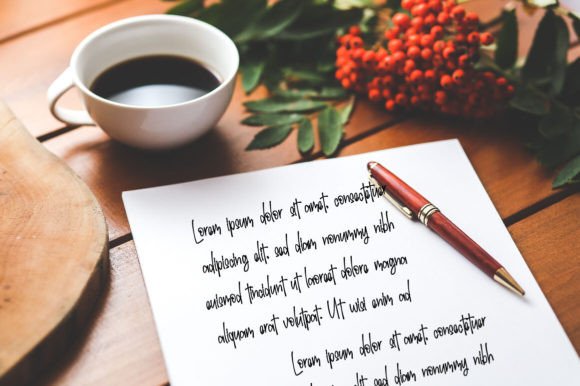 Lorem ipsum dolor sit amet, consectetuer
adipiscing elit, sed diam nonummy nibh
euismod tincidunt ut laoreet dolore magna
aliquam erat volutpat. Ut wisi enim ad
Lorem ipsum dolor sit amet, consectetuer
adipiscing elit, sed diam nonummy nibh